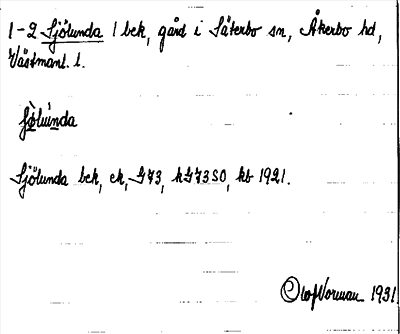 1-2 Sjölunda 1 bek, gård i Säterbo sn, Åkerbo hd,
Västmanl. l.
Sjölunda bek, ek, G73, kG73SO, kb 1921.
Olof Norman 1931